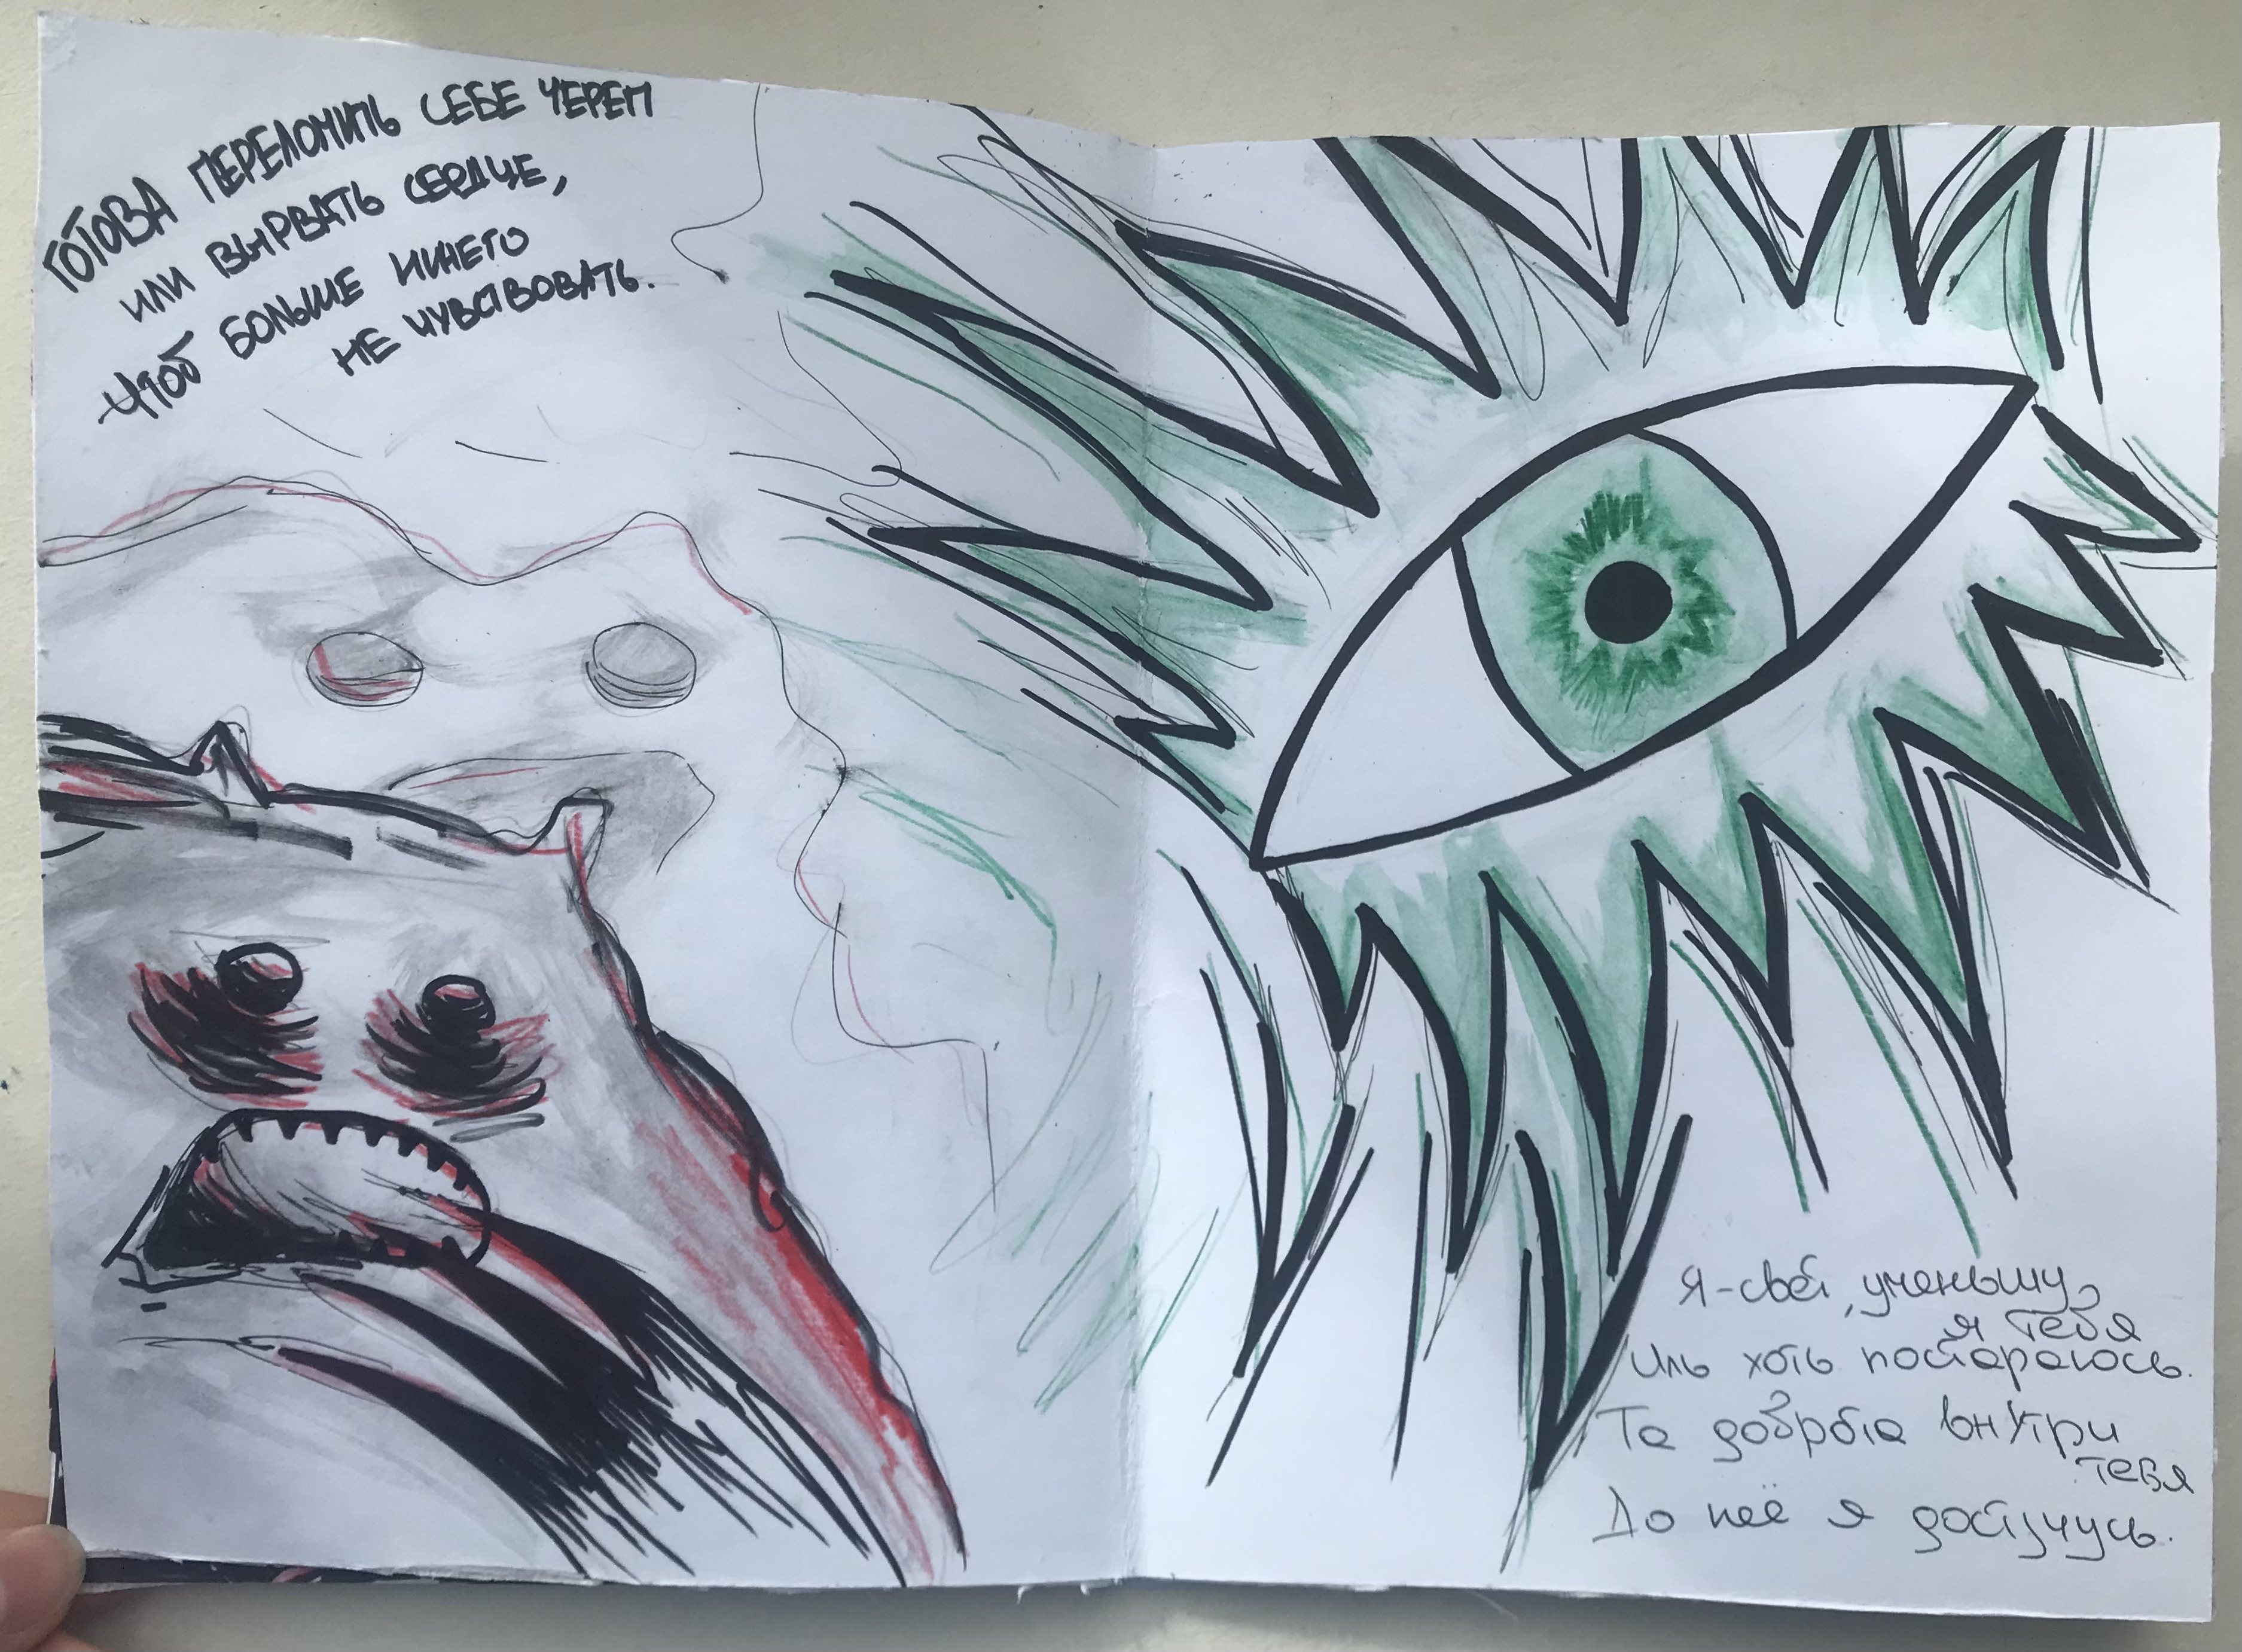 ГОТОВА ПЕРЕЛОМИТЬ СЕБЕ ЧЕРЕП
ИЛИ ВЫРВАТЬ СЕРДЦЕ,
ЧТОБ БОЛЬШЕ НИЧЕГО
НЕ ЧУВСТВОВАТЬ.
Я-свет, уменьшу
я тебя
Иль хоть постараюсь.
Та доброта внутри
тебя
До неё я достучусь.